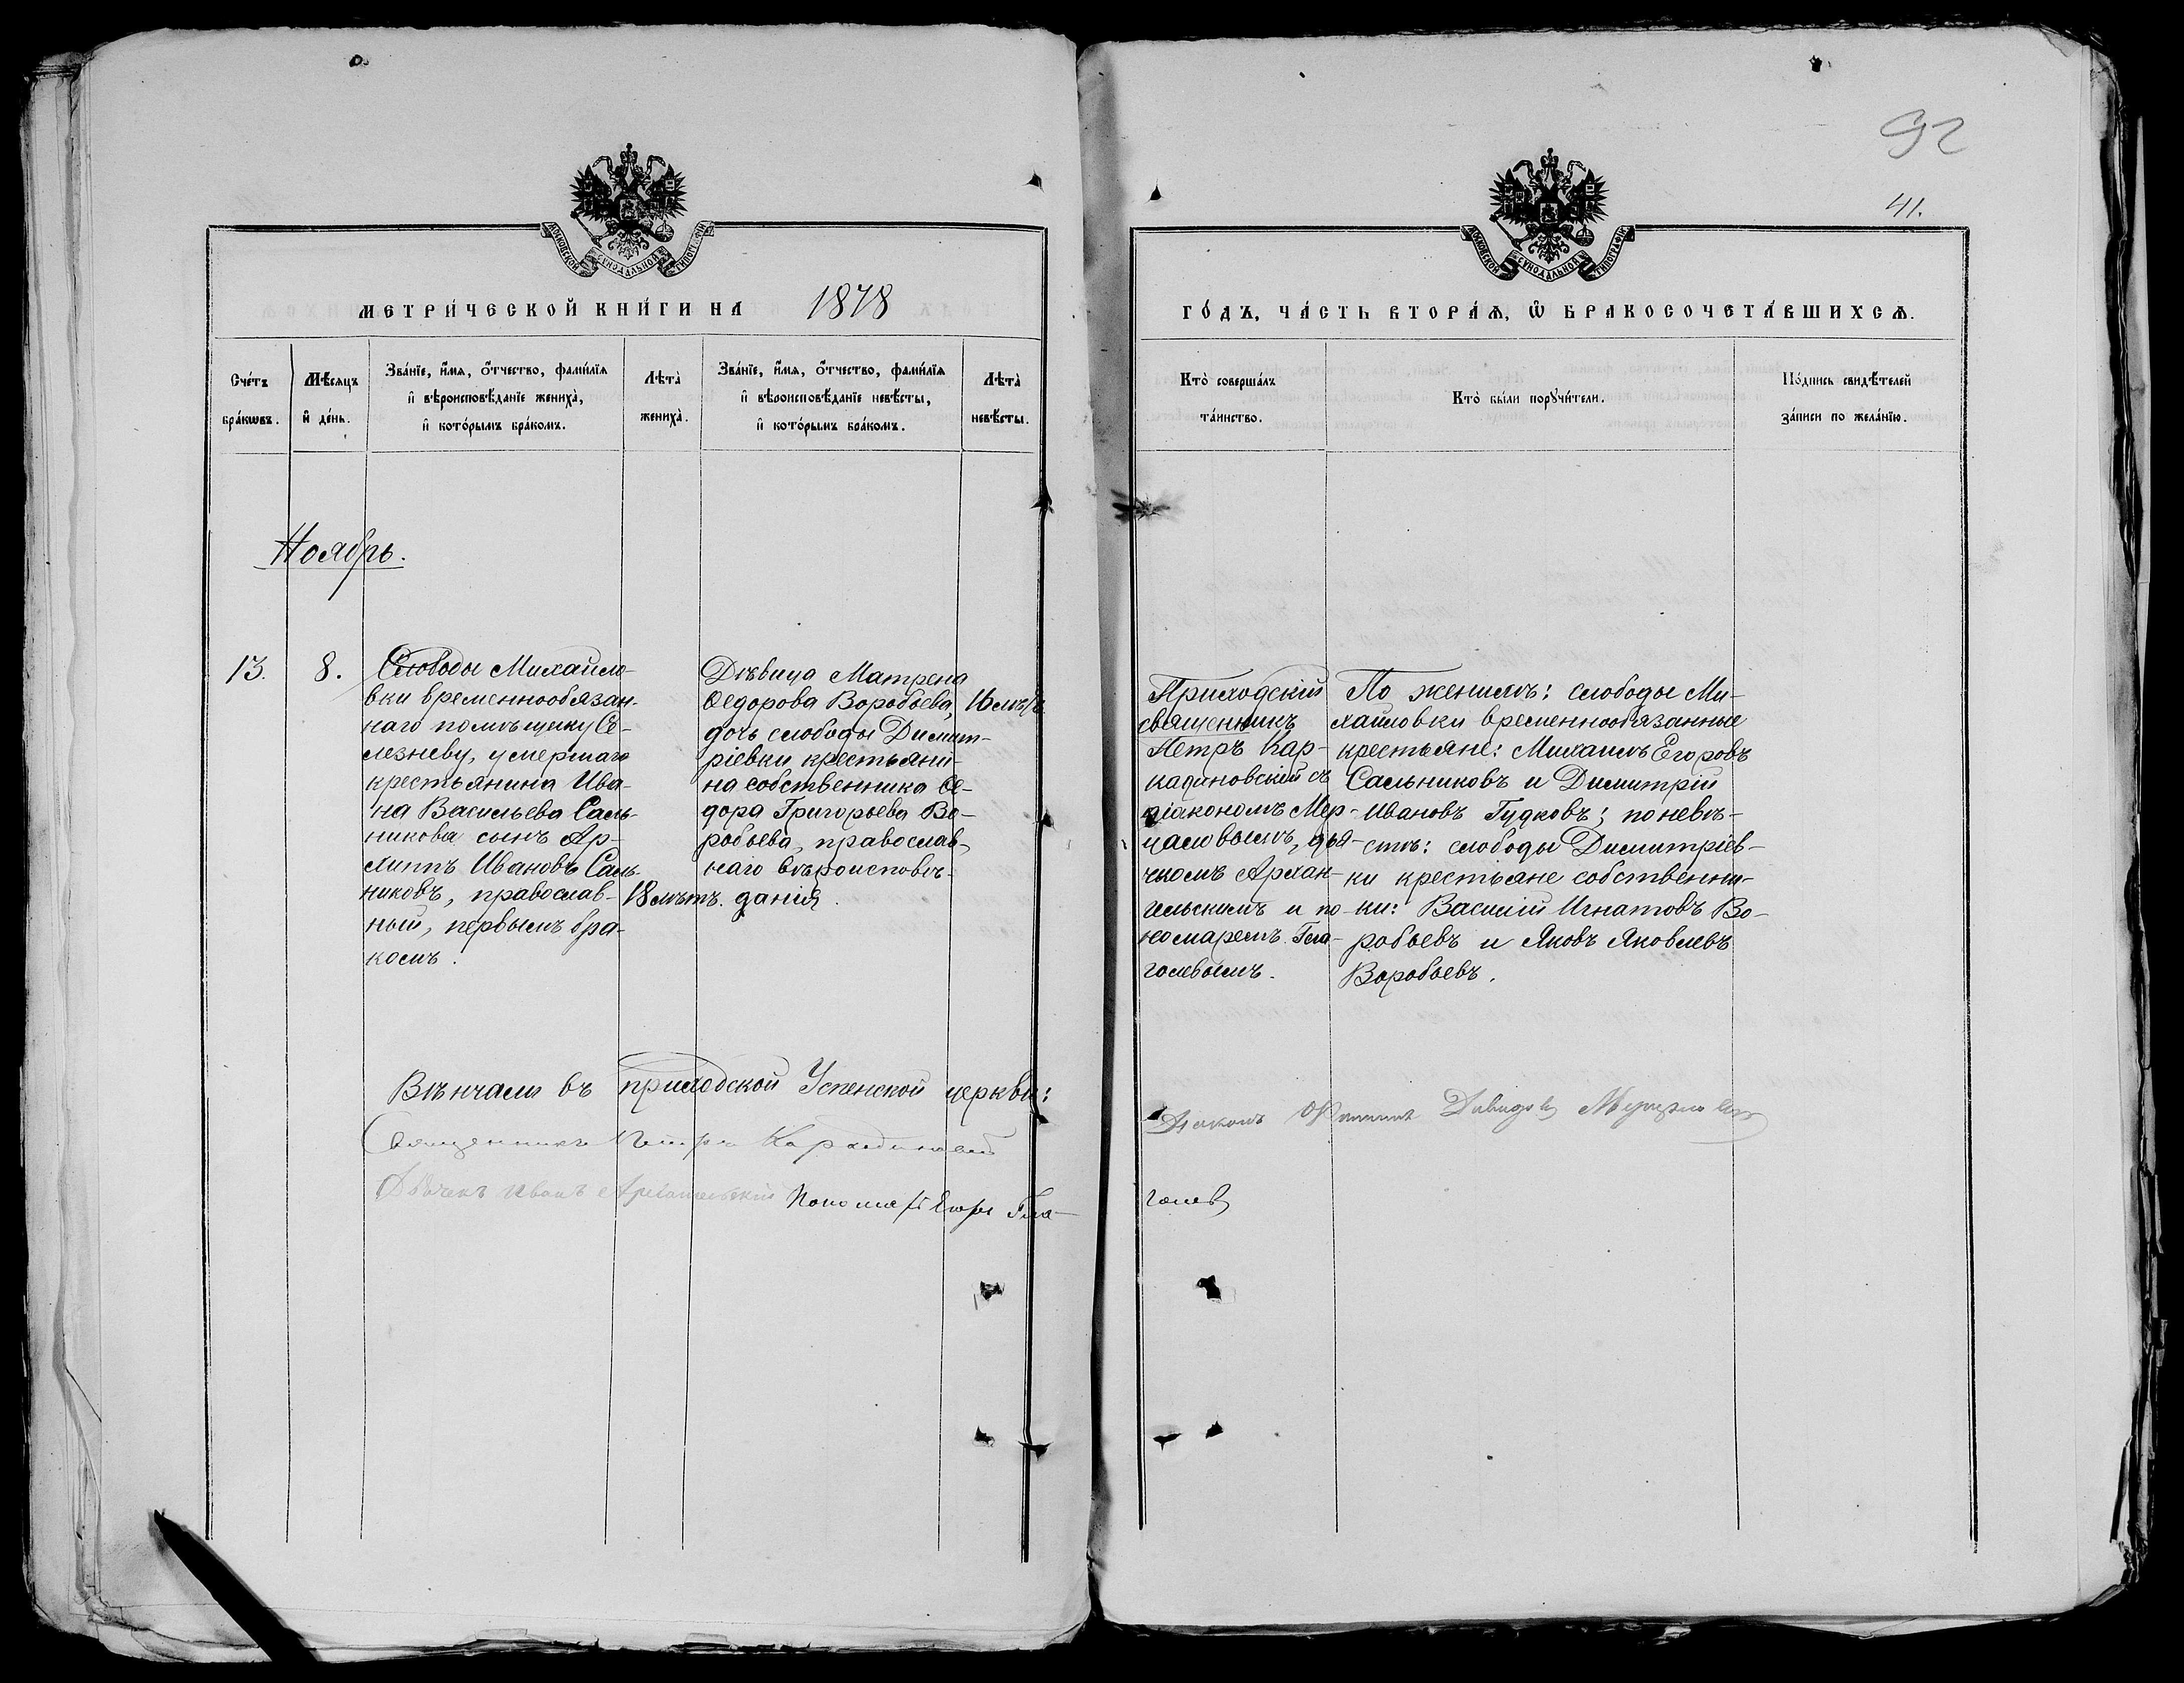 92
41.
МОСКОВСКОЙ СУНОДАЛЬНОЙ ТИПОГРАФІИ
МОСКОВСКОЙ СУНОДАЛЬНОЙ ТИПОГРАФІИ
МЕТРИ́ЧЕСКОЙ КНИ́ГИ НА 1878
ГО́ДЪ, ЧА́СТЬ ВТОРА́Я, Ѿ БРАКОСОЧЕТА́ВШИХСЯ.
Сче́тъ
бра́кѡвъ.
Мѣ́сяцъ
и҆ де́нь.
Зва́нїе, и҆́мя, ѻ҆́тчество, фами́лїя
и҆ вѣроисповѣ́данїе жениха̀,
и҆ кото́рымъ бра́комъ.
Лѣта̀
жениха̀.
Зва́нїе, и҆́мя, ѻ҆́тчество, фами́лїя
и҆ вѣроисповѣ́данїе невѣ́сты,
и҆ кото́рымъ бра́комъ.
Лѣта̀
невѣ́сты.
Кто̀ соверша́лъ
та́инство.
Кто̀ бы́ли порꙋчи́тели.
По́дпись свидѣ́телей
за́писи по жела́нїю.
Ноябрь.
13.
8.
Слободы Михайло-
вки временнообязан-
наго помѣщику Се-
лезневу, умершаго
крестьянина Ива-
на Васильева Саль-
никова сынъ Ар-
хиппъ Ивановъ Саль-
никовъ, православ-
ный, первымъ бра-
комъ.
18 лѣтъ.
Дѣвица Матрена
Ѳедорова Воробьева,
дочь слободы Димит-
ріевки крестьяни-
на собственника Ѳе-
дора Григорьева Во-
робьева, православ-
наго вѣроисповѣ-
данія.
16 лѣтъ
Приходскій
священникъ
Петръ Кар-
кадиновскій съ
діакономъ Мер-
цаловымъ, дья-
чкомъ Архан-
гельскимъ и по-
номаремъ Гла-
голевымъ.
По женихѣ: слободы Ми-
хайловки временнообязанные
крестьяне: Михаилъ Егоровъ
Сальниковъ и Димитрій
Ивановъ Гудковъ; по невѣ-
стѣ: слободы Димитріев-
ки крестьяне собственни-
ки: Василій Игнатовъ Во-
робьевъ и Яковъ Яковлевъ
Воробьевъ.
Вѣнчали въ приходской Успенской церкви:
Священникъ Петръ Каркадиновскій
Діаконъ Филиппъ Давидовъ Мерцаловъ
Дьячекъ Иванъ Архангельскій Пономарь Егоръ Гла-
голевъ